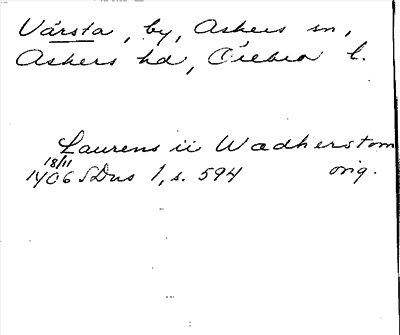 Vårsta, by, Askers sn,
Askers hd, Örebro l.
Laurens ii Wadherstom
18/11
1406 SDns 1, s. 594 orig.